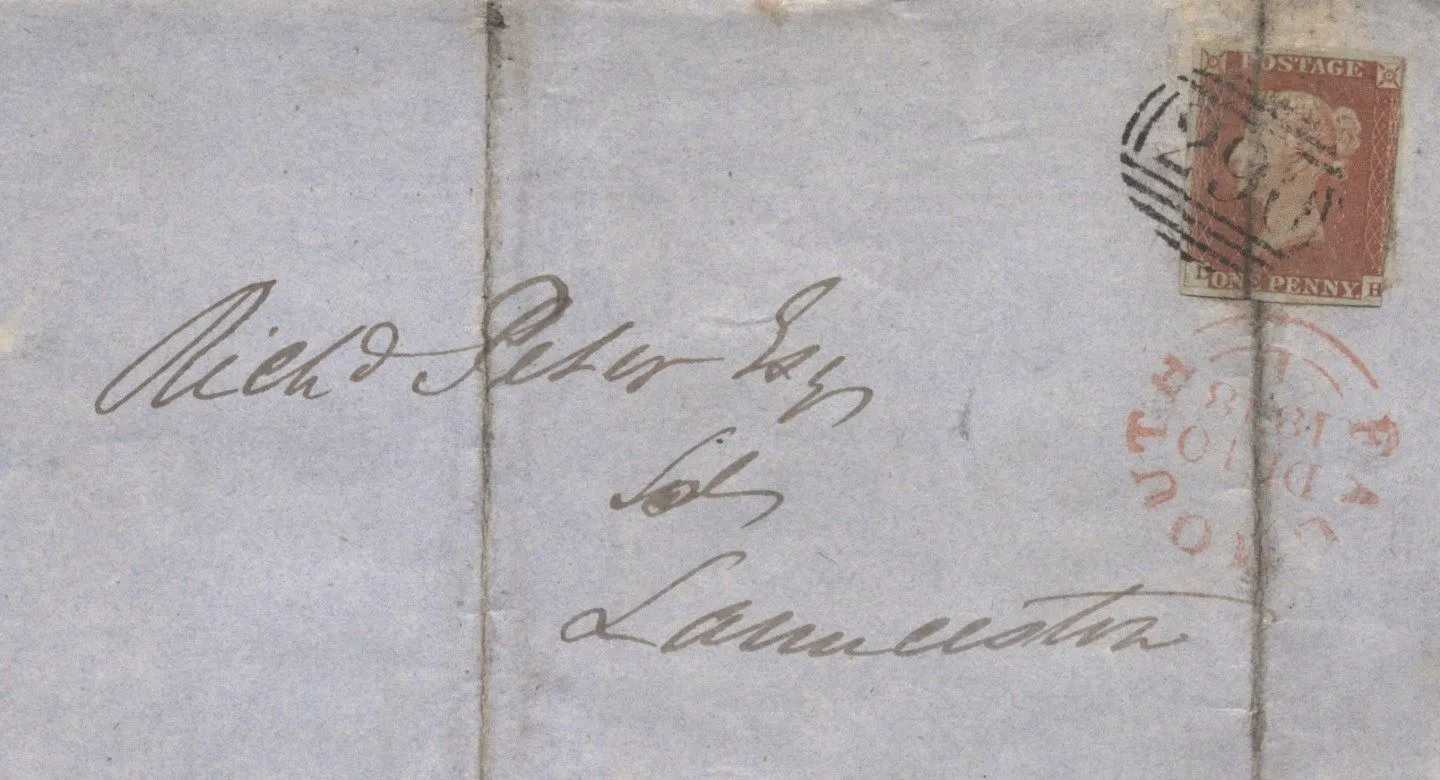 POSTAGE
ONE PENNY.
H
Rich^d Peter Esq^r
Sol^r
Launceston
FALMOUTH
DE 10